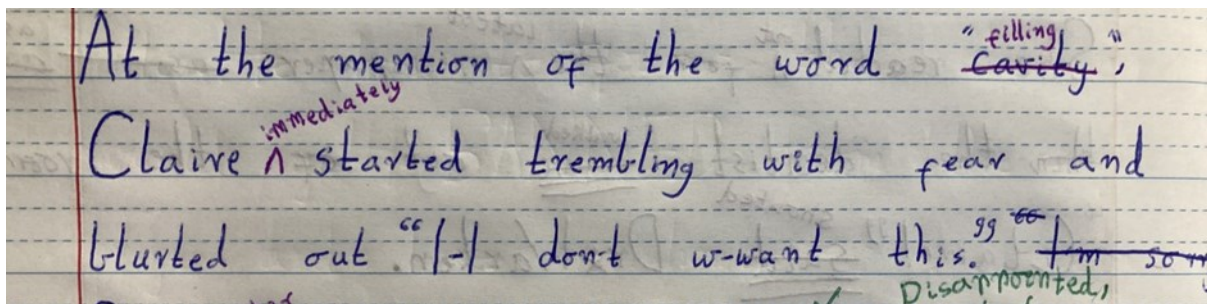 At the mention of the word "filling" ~~cavity~~,
Claire ^ immediately started trembling with fear and
blurted out "I-I dont w-want this." ~~"Im so~~
Disappointed,